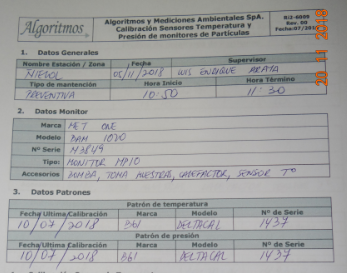 Algoritmos
Algoritmos y Mediciones Ambientales SpA.
Calibración Sensores Temperatura y
Presión de monitores de Partículas
Rev. 00
1. Datos Generales
Nombre Estación / Zona Fecha Supervisor
05/11/2018 LUIS ENRIQUE ARAYA
Tipo de mantención Hora Inicio Hora Término
PREVENTIVA 10:50 11:30
2. Datos Monitor
Marca MET ONE
Modelo BAM 1020
Nº Serie M3849
Tipo: MONITOR MP10
Accesorios BOMBA, TOMA MUESTRA, CALEFACTOR, SENSOR Tº
3. Datos Patrones
Patrón de temperatura
Fecha Ultima Calibración Marca Modelo Nº de Serie
10/07/2018 BGI DELTACAL 1437
Patrón de presión
Fecha Ultima Calibración Marca Modelo Nº de Serie
10/07/2018 BGI DELTACAL 1437
20 11 2018